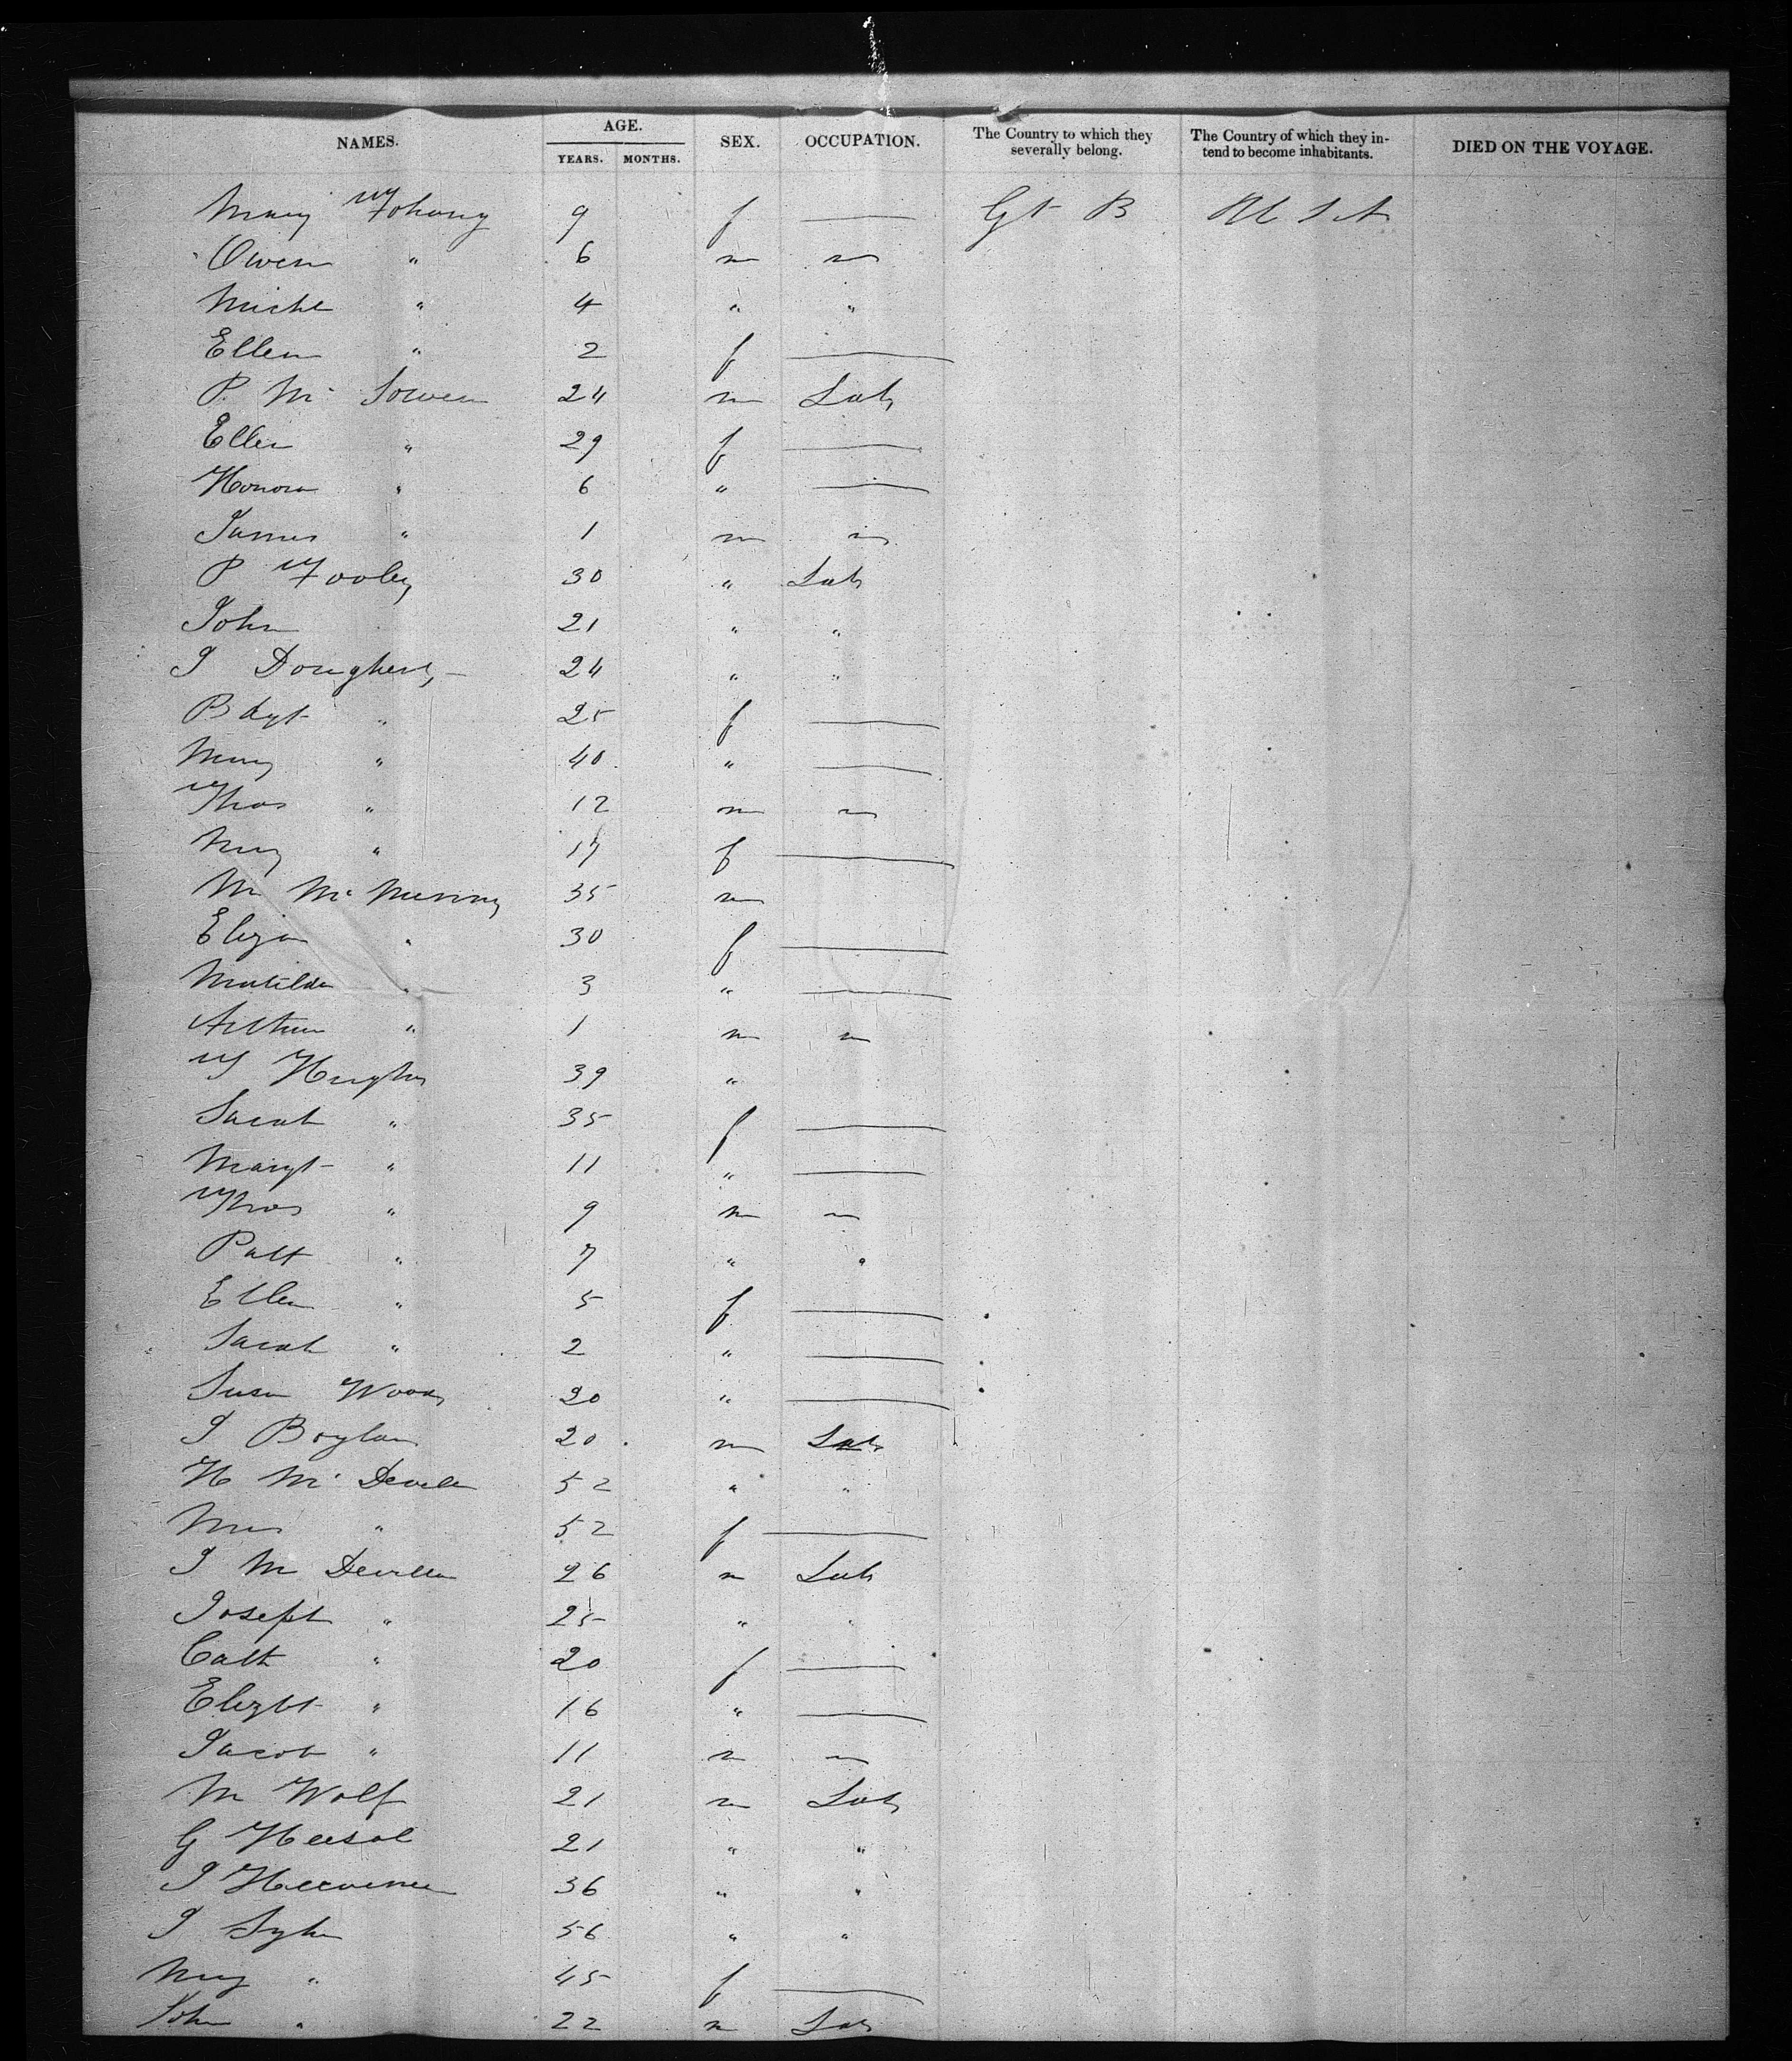 NAMES. AGE. YEARS. MONTHS. SEX. OCCUPATION. The Country to which they severally belong. The Country of which they intend to become inhabitants. DIED ON THE VOYAGE.
Mary 9 f — Gt B
Owen " 6 m
Michl " 4 " "
Ellen " 2 f —
P. Mc 24 m Lab
Ellen " 29 f —
Honora " 6 " —
James " 1 m
P 30 " Lab
John 21 " "
J Dougherty 24 " "
" 25 f —
Mary " 40 " —
Thos " 12 m
Mary " 17 f —
M Mc 35 m
Eliza " 30 f —
Matilda " 3 " —
Arthur " 1 m
T Hughes 39 "
Sarah " 35 f —
Margt " 11 " —
Thos " 9 m
Patt " 7 " "
Ellen " 5 f —
Sarah " 2 " —
Susan Woods 20 " —
J Boylan 20 m Lab
H Mc 52 " "
" 52 f —
J Mc 26 m Lab
Joseph " 25 " "
Cath " 20 f —
Elizbt " 16 " —
Jacob " 11 m
M Wolf 21 m Lab
G 21 " "
J 36 " "
J 56 " "
Mary " 45 f —
John " 22 m Lab